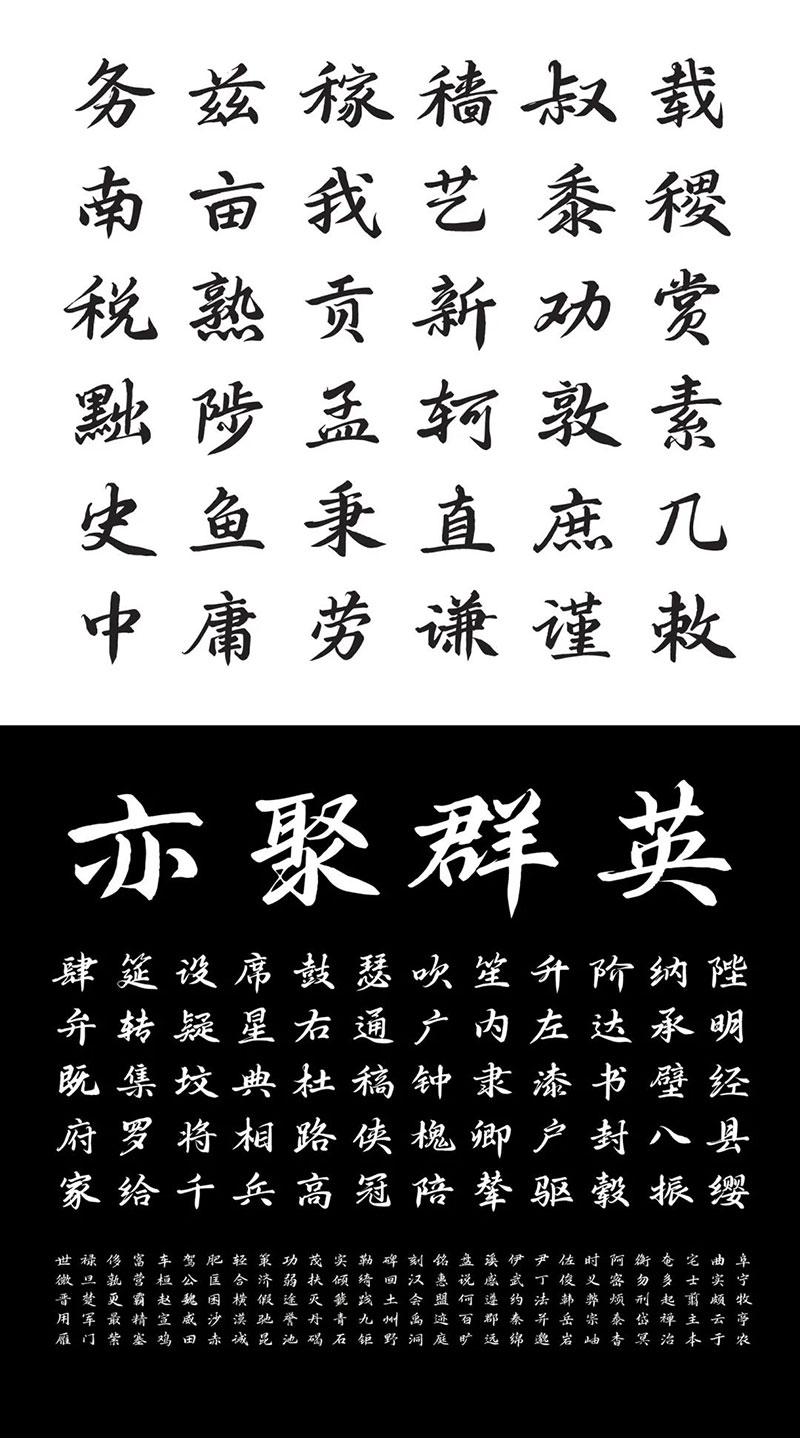 务兹稼穑叔载
南亩我艺黍稷
税熟贡新劝赏
黜陟孟轲敦素
史鱼秉直庶几
中庸劳谦谨敕
亦聚群英
肆筵设席鼓瑟吹笙升阶纳陛
弁转疑星右通广内左达承明
既集坟典杜稿钟隶漆书壁经
府罗将相路侠槐卿户封八县
家给千兵高冠陪辇驱毂振缨
世禄侈富车驾肥轻策功茂实勒碑刻铭盘溪伊尹佐时阿衡奄宅曲阜
微旦孰营桓公匡合济弱扶倾绮回汉惠说感武丁俊义密勿多士实宁
晋楚更霸赵魏困横假途灭虢践土会盟何遵约法韩弊烦刑起翦颇牧
用军最精宣威沙漠驰誉丹青九州禹迹百郡秦并岳宗泰岱禅主云亭
雁门紫塞鸡田赤诚昆池碣石钜野洞庭旷远绵邈岩岫杳冥治本于农